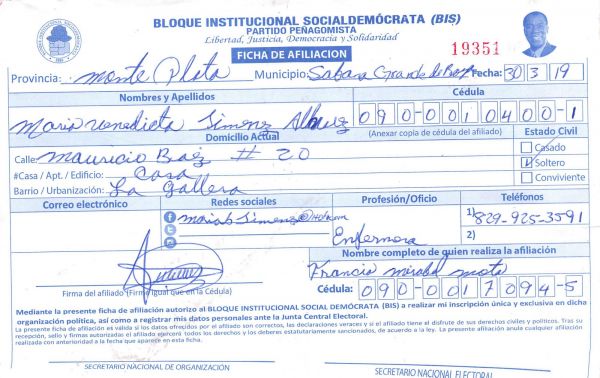 BLOQUE INSTITUCIONAL SOCIALDEMÓCRATA (BIS)
PARTIDO PEÑAGOMISTA
Libertad, Justicia, Democracia y Solidaridad
FICHA DE AFILIACION
19351
Provincia: Monte Plata Municipio: Sabana Grande de Boya Fecha: 30 3 19
Nombres y Apellidos Cédula
Maria Venedicta Simenez 090-0010400-1
Domicilio Actual (Anexar copia de cédula del afiliado) Estado Civil
Calle: Mauricio Baéz # 20 Casado
#Casa / Apt. / Edificio: Casa Soltero
Barrio / Urbanización: La Gallera Conviviente
Correo electrónico Redes sociales Profesión/Oficio Teléfonos
Enfermera 1) 829-925-3591
2)
Nombre completo de quien realiza la afiliación
Francis mirabal mota
Firma del afiliado (Firme igual que en la Cédula) Cédula: 090-0017094-5
Mediante la presente ficha de afiliación autorizo al BLOQUE INSTITUCIONAL SOCIAL DEMÓCRATA (BIS) a realizar mi inscripción única y exclusiva en dicha
organización política, así como a registrar mis datos personales ante la Junta Central Electoral.
La presente ficha de afiliación es valida si los datos ofrecidos por el afiliado son correctos, las declaraciones veraces y si el afiliado tiene el disfrute de sus derechos civiles y políticos. Tras su
recepción, sello y firmas autorizadas el afiliado ejercerá todos los derechos y los deberes estatutariamente sancionados, de acuerdo a la ley. La presente afiliación anula cualquier afiliación
realizada con anterioridad a la fecha que aparece en esta ficha.
SECRETARIO NACIONAL DE ORGANIZACIÓN SECRETARIO NACIONAL ELECTORAL